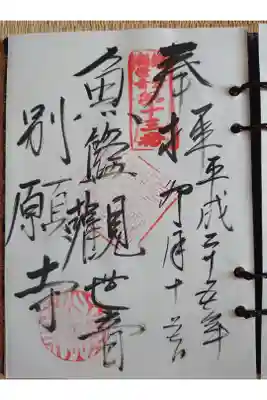 奉拝
平成二十五年
卯月十二日
魚籃観世音
別願寺